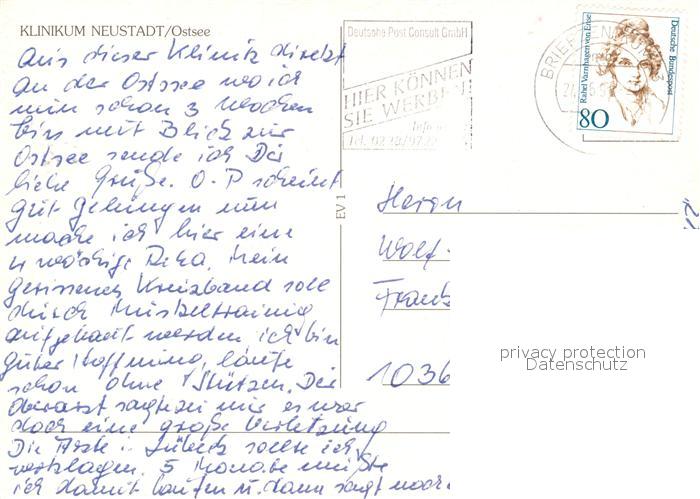 KLINIKUM NEUSTADT/Ostsee
Aus dieser Klinik direkt
an der Ostsee wo ich
nun schon 3 Wochen
bin mit Blick zur
Ostsee sende ich Dir
liebe Grüße. O-P scheint
gut gelungen nun
mache ich hier eine
4 wöchige Reha. Mein
gerissenes Kreuzband solle
durch Muskeltraining
aufgebaut werden ich bin
guter Hoffnung, laufe
schon ohne Stützen. Der
Oberarzt sagte zu mir es war
doch eine große Verletzung
Die Ärzte i. Lübeck sollte ich
verklagen. 5 Monate mußte
ich damit laufen u. dann sagt noch
EV 1
Deutsche Post Consult GmbH
HIER KÖNNEN
SIE WERBEN!
Info
Tel. 02 28/97
BRIEFZENTRUM
Rahel Varnhagen von Ense
Deutsche Bundespost
80
Herrn
Wolf-
Frank
1036
privacy protection
Datenschutz